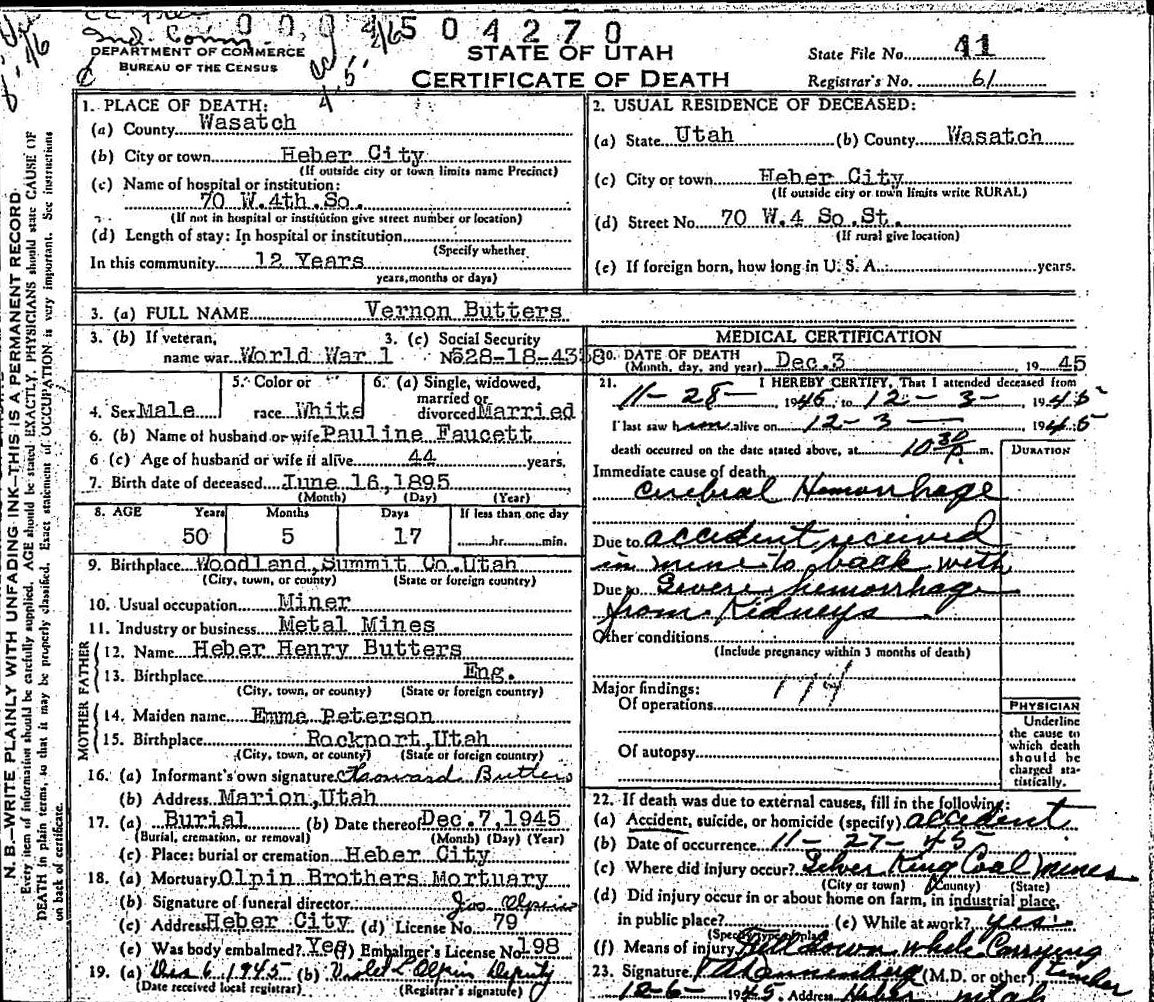 000 04504270
Ind. Comm.
DEPARTMENT OF COMMERCE
BUREAU OF THE CENSUS
STATE OF UTAH
CERTIFICATE OF DEATH
State File No. 41
Registrar's No. 61
N.B.—WRITE PLAINLY WITH UNFADING INK—THIS IS A PERMANENT RECORD.
Every item of information should be carefully supplied. AGE should be stated EXACTLY. PHYSICIANS should state CAUSE OF
DEATH in plain terms, so that it may be properly classified. Exact statement of OCCUPATION is very important. See instructions
on back of certificate.
1. PLACE OF DEATH:
(a) County Wasatch
(b) City or town Heber City
(If outside city or town limits name Precinct)
(c) Name of hospital or institution:
70 W.4th.So.
(If not in hospital or institution give street number or location)
(d) Length of stay: In hospital or institution
(Specify whether
In this community 12 Years
years, months or days)
2. USUAL RESIDENCE OF DECEASED:
(a) State Utah (b) County Wasatch
(c) City or town Heber City
(If outside city or town limits write RURAL)
(d) Street No. 70 W.4 So.St.
(If rural give location)
(e) If foreign born, how long in U. S. A.: years.
3. (a) FULL NAME Vernon Butters
3. (b) If veteran, 3. (c) Social Security
name war World War 1 No 528-18-4358
4. Sex Male
5. Color or
race White
6. (a) Single, widowed,
married or
divorced Married
6. (b) Name of husband or wife Pauline Faucett
6 (c) Age of husband or wife if alive 44 years.
7. Birth date of deceased June 16,1895
(Month) (Day) (Year)
8. AGE Years Months Days If less than one day
50 5 17 hr. min.
9. Birthplace Woodland,Summit Co.Utah
(City, town, or county) (State or foreign country)
10. Usual occupation Miner
11. Industry or business Metal Mines
FATHER
12. Name Heber Henry Butters
13. Birthplace Eng.
(City, town, or county) (State or foreign country)
MOTHER
14. Maiden name Emma Peterson
15. Birthplace Rockport,Utah
(City, town, or county) (State or foreign country)
16. (a) Informant's own signature Howard Butters
(b) Address Marion,Utah
17. (a) Burial (b) Date thereof Dec.7,1945
(Burial, cremation, or removal) (Month) (Day) (Year)
(c) Place: burial or cremation Heber City
18. (a) Mortuary Olpin Brothers Mortuary
(b) Signature of funeral director Jos Olpin
(c) Address Heber City (d) License No. 79
(e) Was body embalmed? Yes (f) Embalmer's License No. 198
19. (a) Dec 6 1945 (b) Violet L Olpin Deputy
(Date received local registrar) (Registrar's signature)
MEDICAL CERTIFICATION
20. DATE OF DEATH
(Month, day, and year) Dec.3 19 45
21. I HEREBY CERTIFY, That I attended deceased from
11-28- 1945 to 12-3- 1945
I last saw him alive on 12-3 1945
death occurred on the date stated above, at 10 30 P. m.
DURATION
Immediate cause of death
Cerebral Hemorrhage
Due to accident received
in mine to back with
Due to Severe hemorrhage
from Kidneys
Other conditions
(Include pregnancy within 3 months of death)
Major findings: 194
Of operations
Of autopsy
PHYSICIAN
Underline
the cause to
which death
should be
charged sta-
tistically.
22. If death was due to external causes, fill in the following:
(a) Accident, suicide, or homicide (specify) accident
(b) Date of occurrence 11-27-45
(c) Where did injury occur? Silver King Coal mines
(City or town) (County) (State)
(d) Did injury occur in or about home on farm, in industrial place,
in public place? (e) While at work? yes
(Specify type of place)
(f) Means of injury Fell down while Carrying
timber
23. Signature (M.D. or other)
12-6- 1945. Address Heber Utah